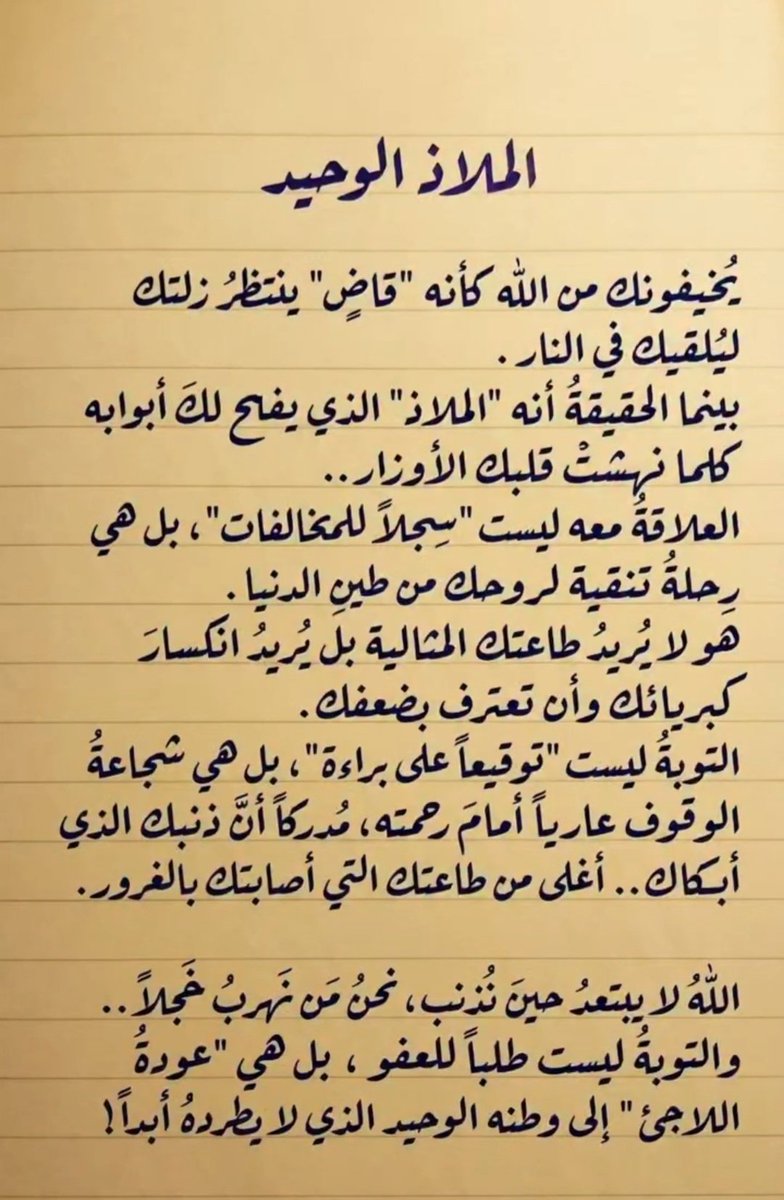 الملاذ الوحيد
يُخيفونك من الله كأنه "قاضٍ" ينتظرُ زلتك
ليُلقيك في النار.
بينما الحقيقةُ أنه "الملاذ" الذي يفتح لكَ أبوابه
كلما نهشتْ قلبك الأوزار..
العلاقةُ معه ليست "سِجلاً للمخالفات"، بل هي
رِحلةُ تنقية لروحك من طينِ الدنيا.
هو لا يُريدُ طاعتك المثالية بل يُريدُ انكسارَ
كبريائك وأن تعترف بضعفك.
التوبةُ ليست "توقيعاً على براءة"، بل هي شجاعةُ
الوقوف عارياً أمامَ رحمته، مُدركاً أنَّ ذنبك الذي
أبكاك.. أغلى من طاعتك التي أصابتك بالغرور.
اللهُ لا يبتعدُ حينَ نُذنب، نحنُ مَن نَهربُ خَجلاً..
والتوبةُ ليست طلباً للعفو، بل هي "عودةُ
اللاجئ" إلى وطنه الوحيد الذي لا يطردهُ أبداً!